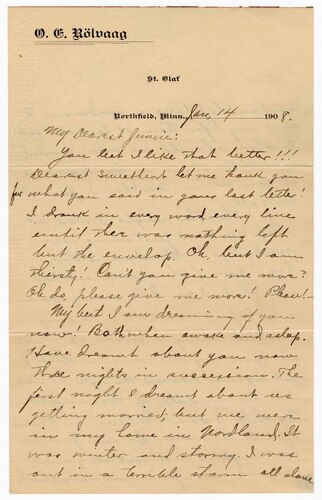 O. E. Rölvaag
St. Olaf
Northfield, Minn., Jan, 14 1908.
My Dearest Jennie:
You bet I like that better!!!
Dearest Sweetheart let me thank you
for what you said in your last letter!
I drank in every word, every line
until ther was nothing left
but the envelop. Oh, but I am
thirsty! Can't you give me more?
Oh do, please give me more! Please!–
My, but I am dreaming of you
now! Both when awake and aslep.
Have dreamt about you now
three nights in succession. The
first night I dreamt about us
getting married, but we were
in my home in Nordland. It
was winter and stormy. I was
out in a terrible storm all alone